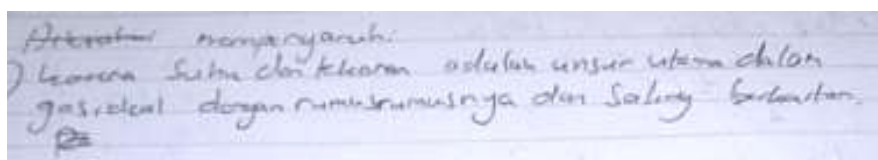 mempengaruhi
) karena Suhu dan tekanan adalah unsur utama dalam
gas ideal dengan rumusrumusnya dan Saling berkaitan.